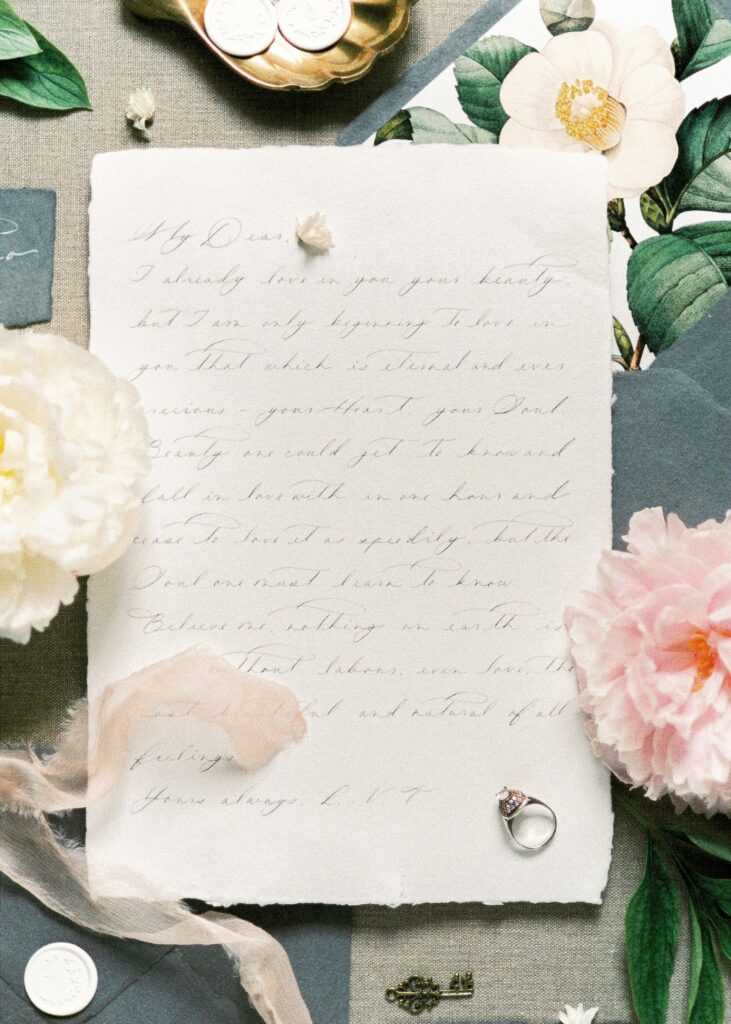 My Dear,
I already love in you your beauty,
but I am only beginning to love in
you that which is eternal and ever
precious – your Heart, your Soul.
Beauty one could get to know and
fall in love with in one hour and
cease to love it as speedily; but the
Soul one must learn to know.
Believe me, nothing on earth is
without labour, even love, the
most beautiful and natural of all
feelings
Yours always, L. N. T